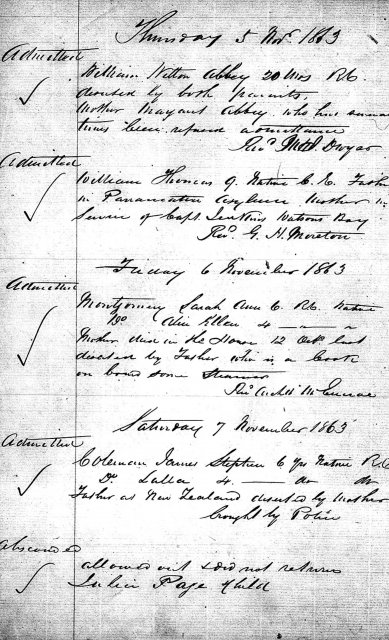 Thursday 5 Novr. 1863
Admitted
William Hilton Abbey 20 Mos R.C.
deserted by both parents
Mother Margaret Abbey who has several
times been refused admittance
Revd. Dwyer
Admitted
William Thomas 9. Native C. E. Father
in Parramatta Asylum Mother in
service of Capt. Jenkins Watsons Bay
Revd. G. H. Moreton
Friday 6 November 1863
Admitted
Montgomery Sarah Ann 6. R.C. Native
Do Allen 4 — " — "
Mother died in the House 12 Octr. last
deserted by Father who is a Cook
on board some Steamer
Revd. McEncroe
Saturday 7 November 1863
Admitted
Coleman James Stephen 6 yrs Native R.C.
Do 4. — do do
Father at New Zealand deserted by Mother
brought by Police
absconded
allowed out & did not return
Julia Page & Child